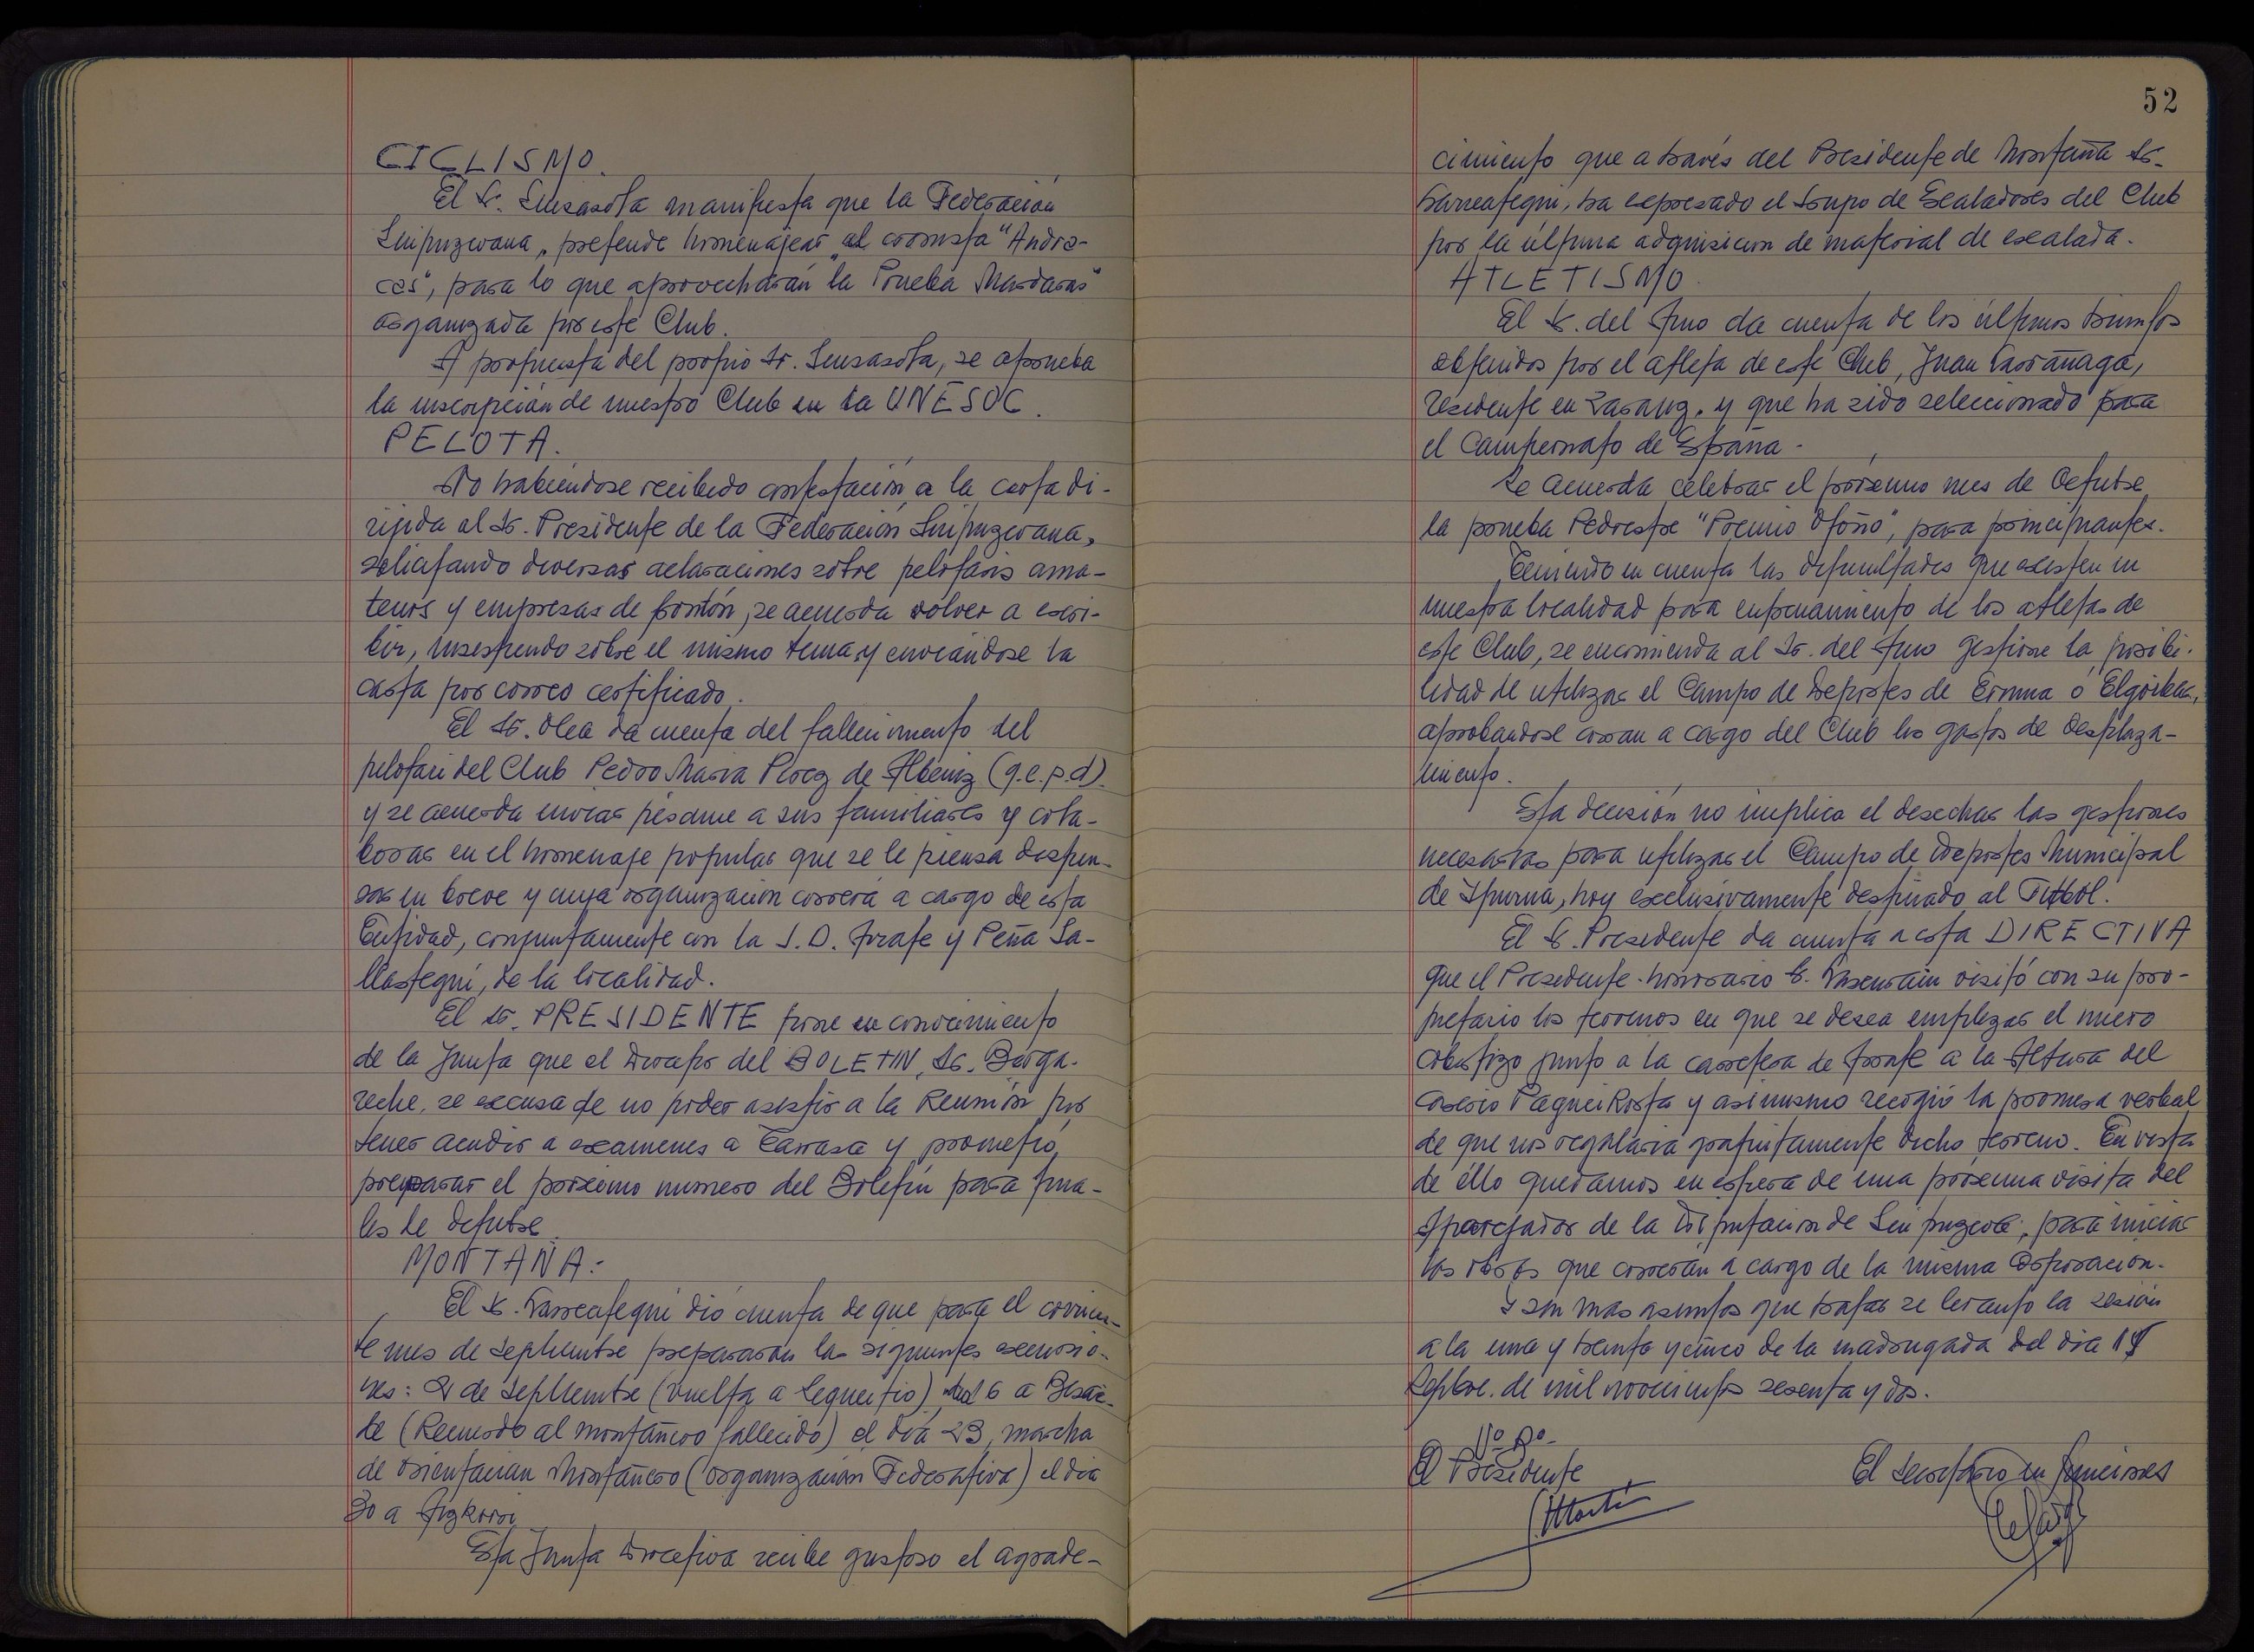 CICLISMO.
El Sr. Suinasota manifiesta que la Federación
Guipuzcoana, pretende homenajear al cronista "Andro-
ces", para lo que aprovecharán la Prueba Mardaras"
organizada por este Club.
A propuesta del propio Sr. , se aprueba
la inscripción de nuestro Club en la UNESOC.
PELOTA.
No habiéndose recibido contestación a la carta di-
rijida al Sr. Presidente de la Federación Guipuzcoana,
solicitando diversas aclaraciones sobre pelotaris ama-
teurs y empresas de frontón, se acuerda volver a escri-
bir, insistiendo sobre el mismo tema, y enviandose la
carta por correo certificado.
El Sr. Olea da cuenta del fallecimiento del
pelotari del Club Pedro Maria Perez de Albeniz (q.e.p.d).
y se acuerda enviar pésame a sus familiares y cola-
borar en el homenaje popular que se le piensa dispen-
sar en breve y cuya organización correrá a cargo de esta
Entidad, conjuntamente con la S.D. Arrate y Peña Ga-
llastegui, de la localidad.
El Sr. PRESIDENTE pone en conocimiento
de la Junta que el Director del BOLETIN, Sr. Berga-
reche, se excusa de no poder asistir a la Reunión por
tener acudir a examenes a Tarrasa y prometió
preparar el próximo numero del Boletín para fina-
les de Octubre.
MONTAÑA:-
El Sr. Larreategui dió cuenta de que para el corrien-
te mes de Septiembre prepararon las siguientes excursio-
nes: 2 de Septiembre (vuelta a Lequeitio) 6 a
te (Recuerdo al montañero fallecido) el día 23, marcha
de orientación Montañero (organización Federativa) el dia
30 a Aizkorri
Esta Junta Directiva recibe gustoso el agrade-
52
cimiento que a través del Presidente de Montaña Sr.
Larreategui, ha expresado el Grupo de Escaladores del Club
por la última adquisicion de material de escalada.
ATLETISMO.
El Sr. del Amo da cuenta de los últimos triunfos
obtenidos por el atleta de este Club, Juan Larrañaga,
residente en Zarauz, y que ha sido seleccionado para
el Campeonato de España.-
Se acuerda celebrar el próximo mes de Octubre
la prueba Pedestre "Premio Otoño", para principiantes.
Teniendo en cuenta las dificultades que existen en
nuestra localidad para entrenamiento de los atletas de
este Club, se encomienda al Sr. del Amo gestione la posibi-
lidad de utilizar el Campo de Deportes de Ermua o Elgoibar,
aprobandose corran a cargo del Club los gastos de desplaza-
miento.
Esta decisión no implica el desechar las gestiones
necesarias para utilizar el Campo de Deportes Municipal
de Ipurua, hoy exclusivamente destinado al Futbol.
El Sr. Presidente da cuenta a esta DIRECTIVA
que el Presidente-honorario Sr. visitó con su pro-
pietario los terrenos en que se desea emplazar el nuevo
cobertizo junto a la carretera de Arrate a la Altura del
caserio y asimismo recogió la promesa verbal
de que nos regalaria gratuitamente dicho terreno. En vista
de éllo quedamos en espera de una próxima visita del
Aparejador de la Diputacion de Guipuzcoa, para iniciar
las obras que correrán a cargo de la misma Corporación.
Y sin mas asuntos que tratar se levantó la sesión
a la una y treinta y cinco de la madrugada del dia
Septbre. de mil novecientos sesenta y dos.
Vº Bº
El Presidente
El Secretario en funciones